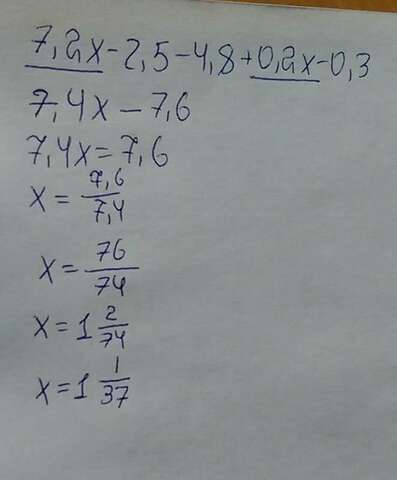 7,2x-2,5-4,8+0,2x-0,3
7,4x-7,6
7,4x=7,6
x=7,6/7,4
x=76/74
x=1 2/74
x=1 1/37